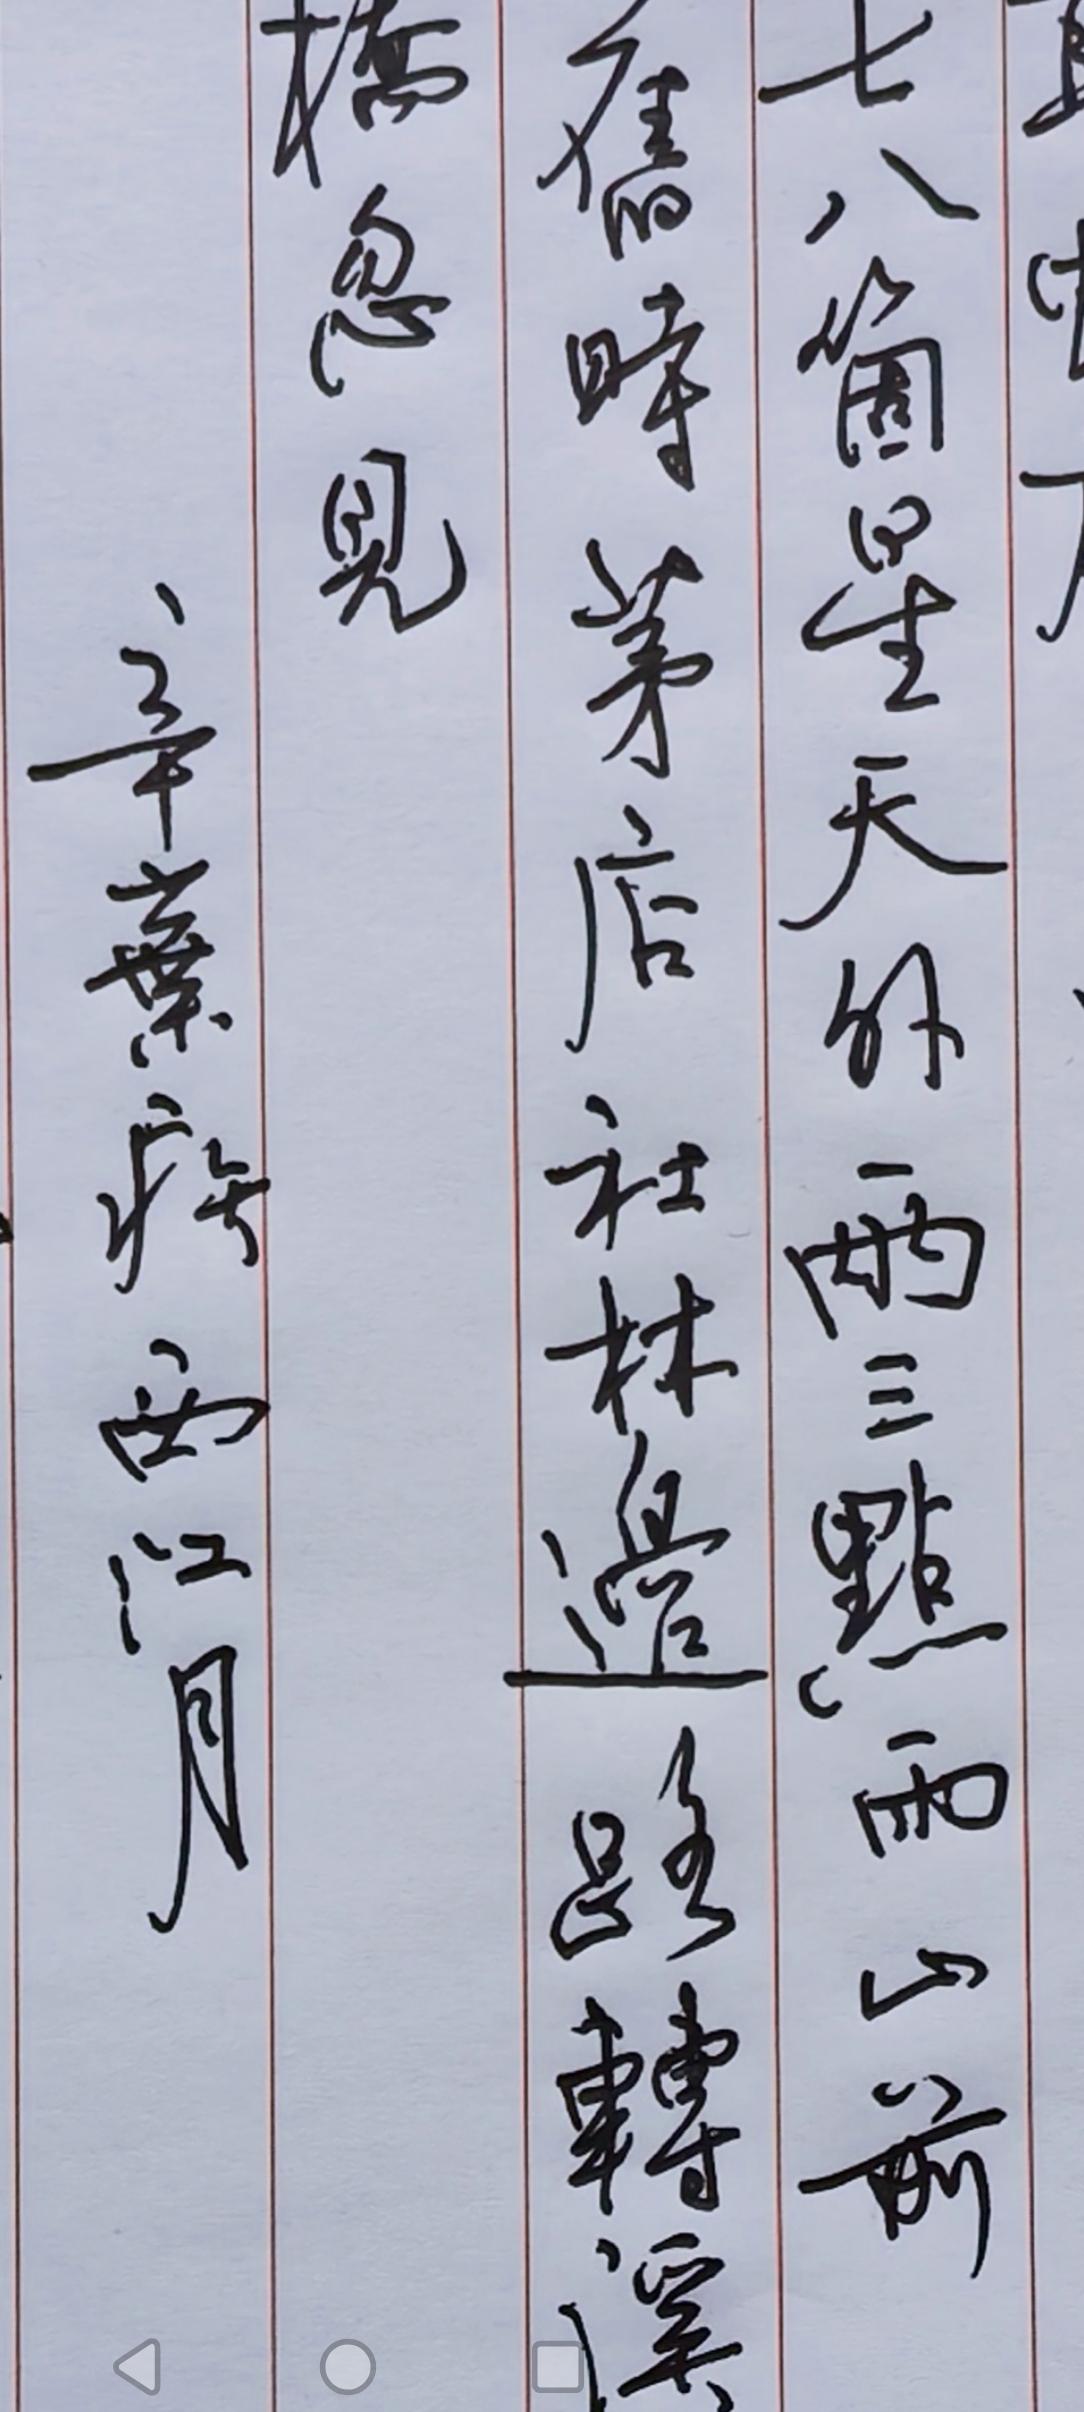 七八箇星天外兩三點雨山前
舊時茅店社林邊路轉溪
橋忽見
辛棄疾西江月